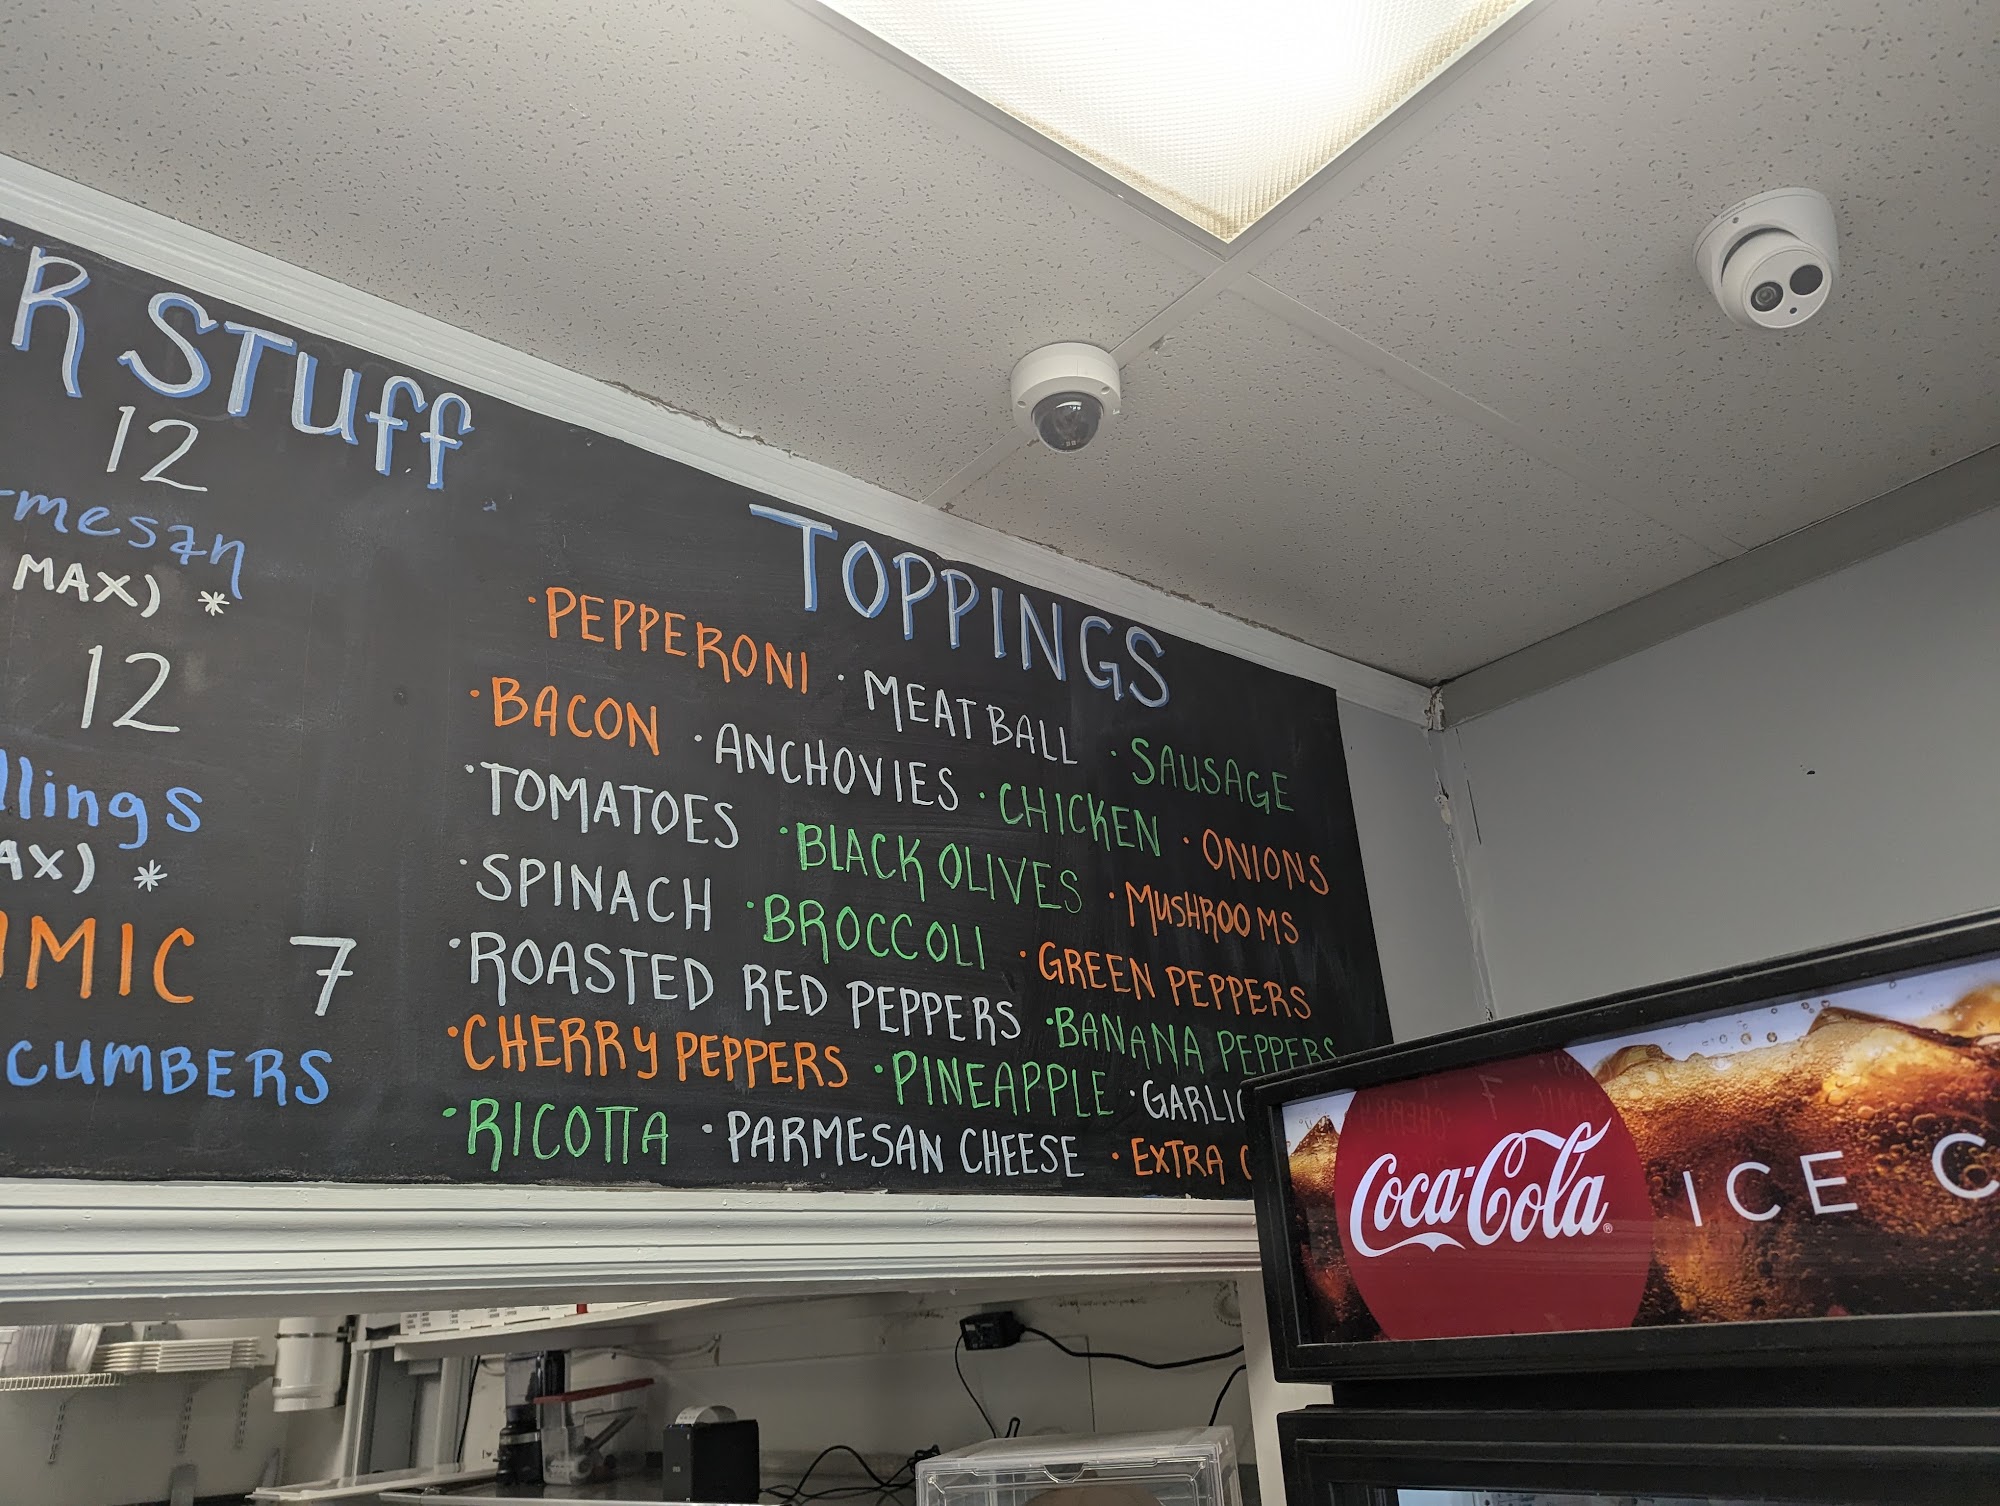 R STuff
12
mesan
MAX) *
12
llings
AX) *
MIC 7
CUMBERS
TOPPINGS
·PEPPERONI ·MEATBALL ·SAUSAGE
·BACON ·ANCHOVIES ·CHICKEN ·ONIONS
·TOMATOES ·BLACK OLIVES ·MUSHROOMS
·SPINACH ·BROCCOLI ·GREEN PEPPERS
·ROASTED RED PEPPERS ·BANANA PEPPERS
·CHERRY PEPPERS ·PINEAPPLE ·GARLIC
·RICOTTA ·PARMESAN CHEESE ·EXTRA C
Coca-Cola® ICE C